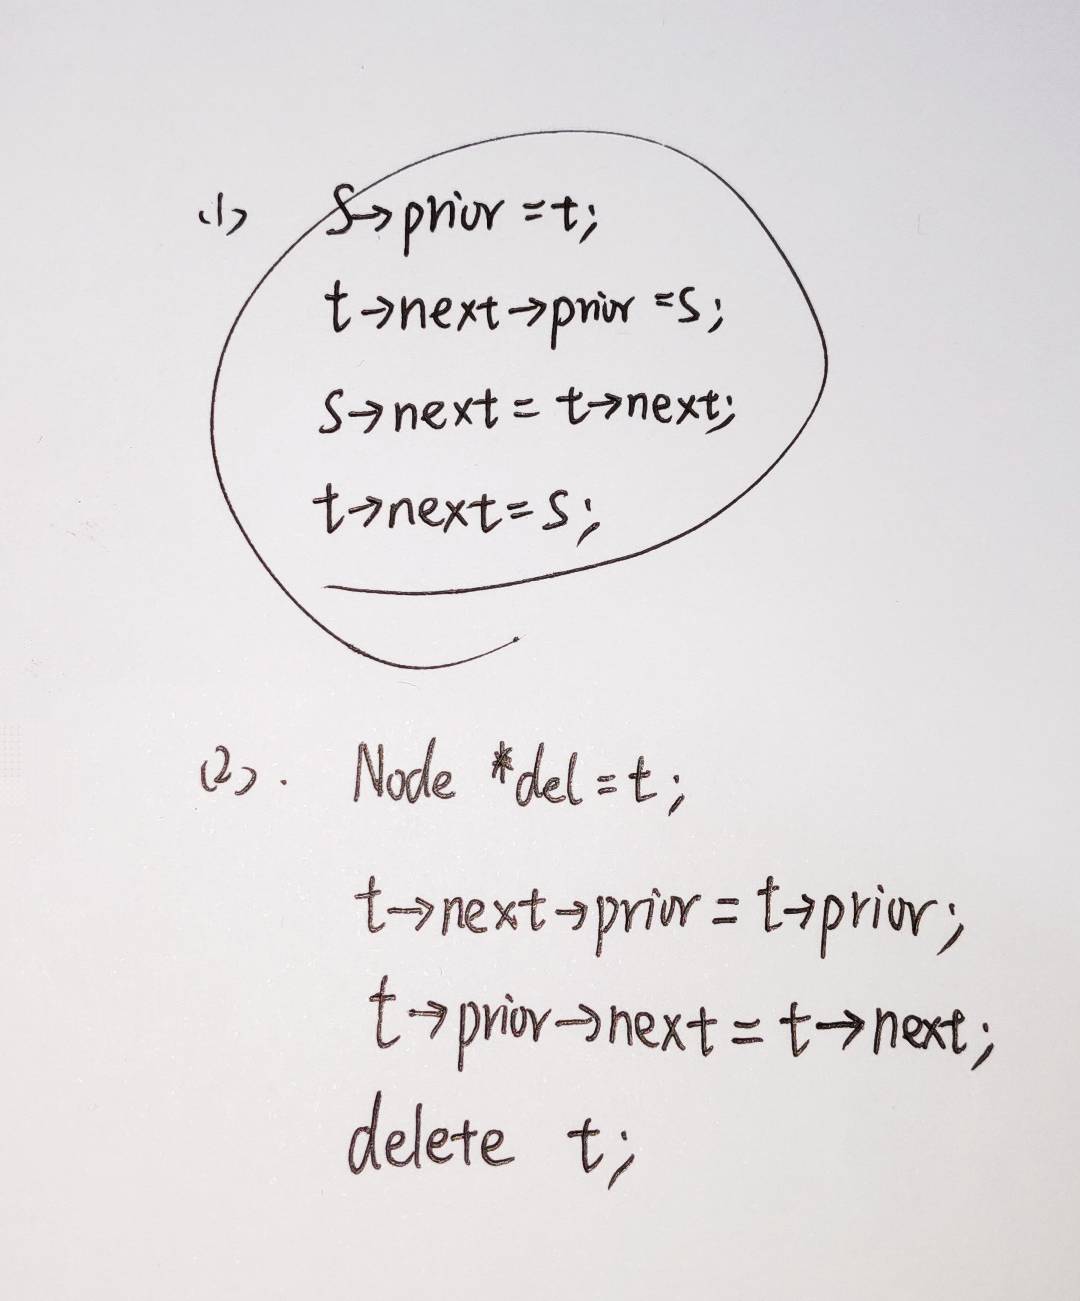 (1) S→prior=t;
t→next→prior=s;
s→next=t→next;
t→next=s;
(2). Node *del=t;
t→next→prior=t→prior;
t→prior→next=t→next;
delete t;